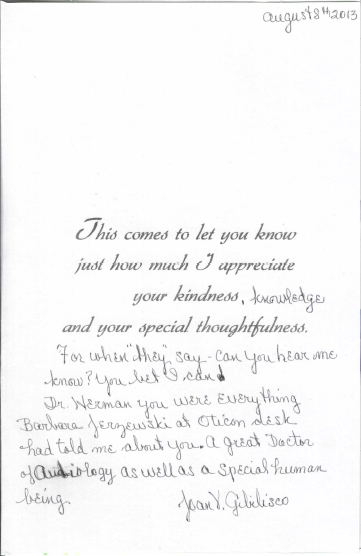 August 8th 2013
This comes to let you know
just how much I appreciate
your kindness, knowledge
and your special thoughtfulness.
For when "they" say - Can you hear me
know? You bet I can
Dr. Herman you were everything
Barbara Jerzewski at Oticon desk
had told me about you. A great Doctor
of Audiology as well as a special human
being.
Joan V. Gibilisco